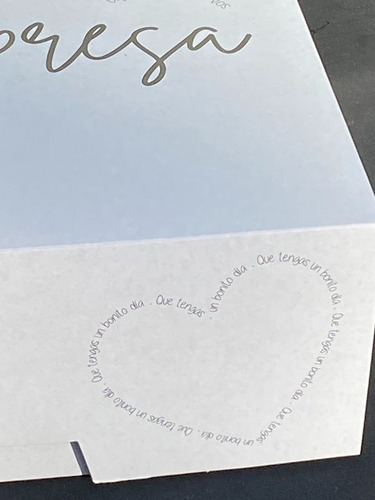 presa
un bonito día . Que tengas un bonito día . Que tengas un bonito día . Que tengas un bonito día . Que tengas un bonito día . Que tengas un bonito día . Que tengas .